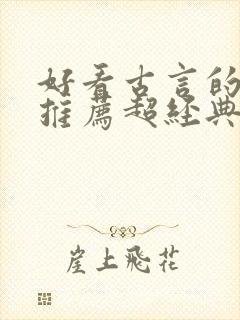 好看古言的
推薦超經典
崖上飛花